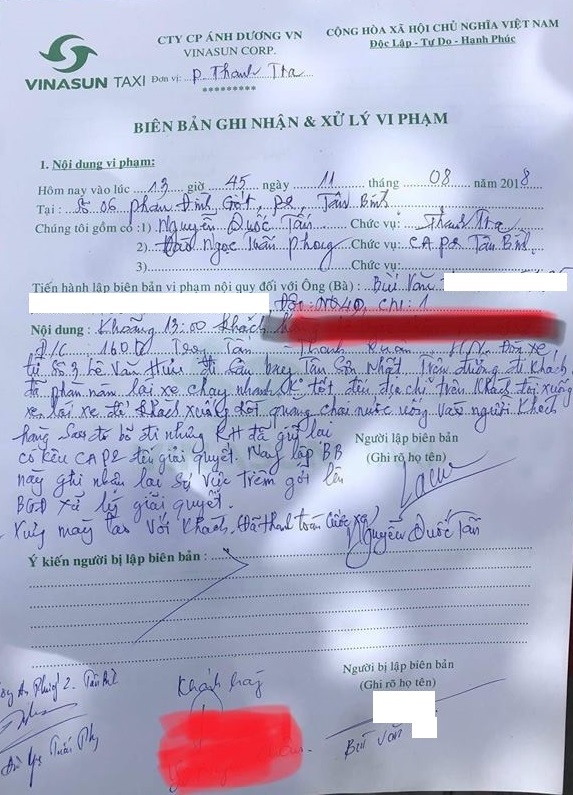 CTY CP ÁNH DƯƠNG VN
CỘNG HÒA XÃ HỘI CHỦ NGHĨA VIỆT NAM
VINASUN CORP.
Độc Lập - Tự Do - Hạnh Phúc
VINASUN TAXI Đơn vị: P. Thanh Tra
*********
BIÊN BẢN GHI NHẬN & XỬ LÝ VI PHẠM
1. Nội dung vi phạm:
Hôm nay vào lúc 13 giờ 45 ngày 11 tháng 08 năm 2018
Tại : Số 06 Phan Đình Giót, P2, Tân Bình
Chúng tôi gồm có :1) Nguyễn Quốc Tấn Chức vụ: Thanh Tra
2) Đào Ngọc Tuấn Phong Chức vụ: CA P2 Tân Bình
3) Chức vụ:
Tiến hành lập biên bản vi phạm nội quy đối với Ông (Bà) : Bùi Văn
Nội dung : Khoảng 13:00 Khách
Đ/C : Đón xe
từ số 3 Lê Văn Hưu đi sân bay Tân Sơn Nhất. Trên đường đi khách
đã phàn nàn lái xe chạy nhanh K tốt, đến địa chỉ trên khách xuống
xe lái xe đi xuống quăng chai nước uống vào người khách
hàng sau đó bỏ đi nhưng KH đã giữ lại
có kêu CA P2 đến giải quyết. Nay lập BB
này ghi nhận lại sự việc trên gởi lên
BGĐ xử lý giải quyết.
Xưng mày tao với khách. Đã thanh toán cước xe
Người lập biên bản
(Ghi rõ họ tên)
Nguyễn Quốc Tấn
Ý kiến người bị lập biên bản :
Khách hàng
Người bị lập biên bản
(Ghi rõ họ tên)
Bùi Văn